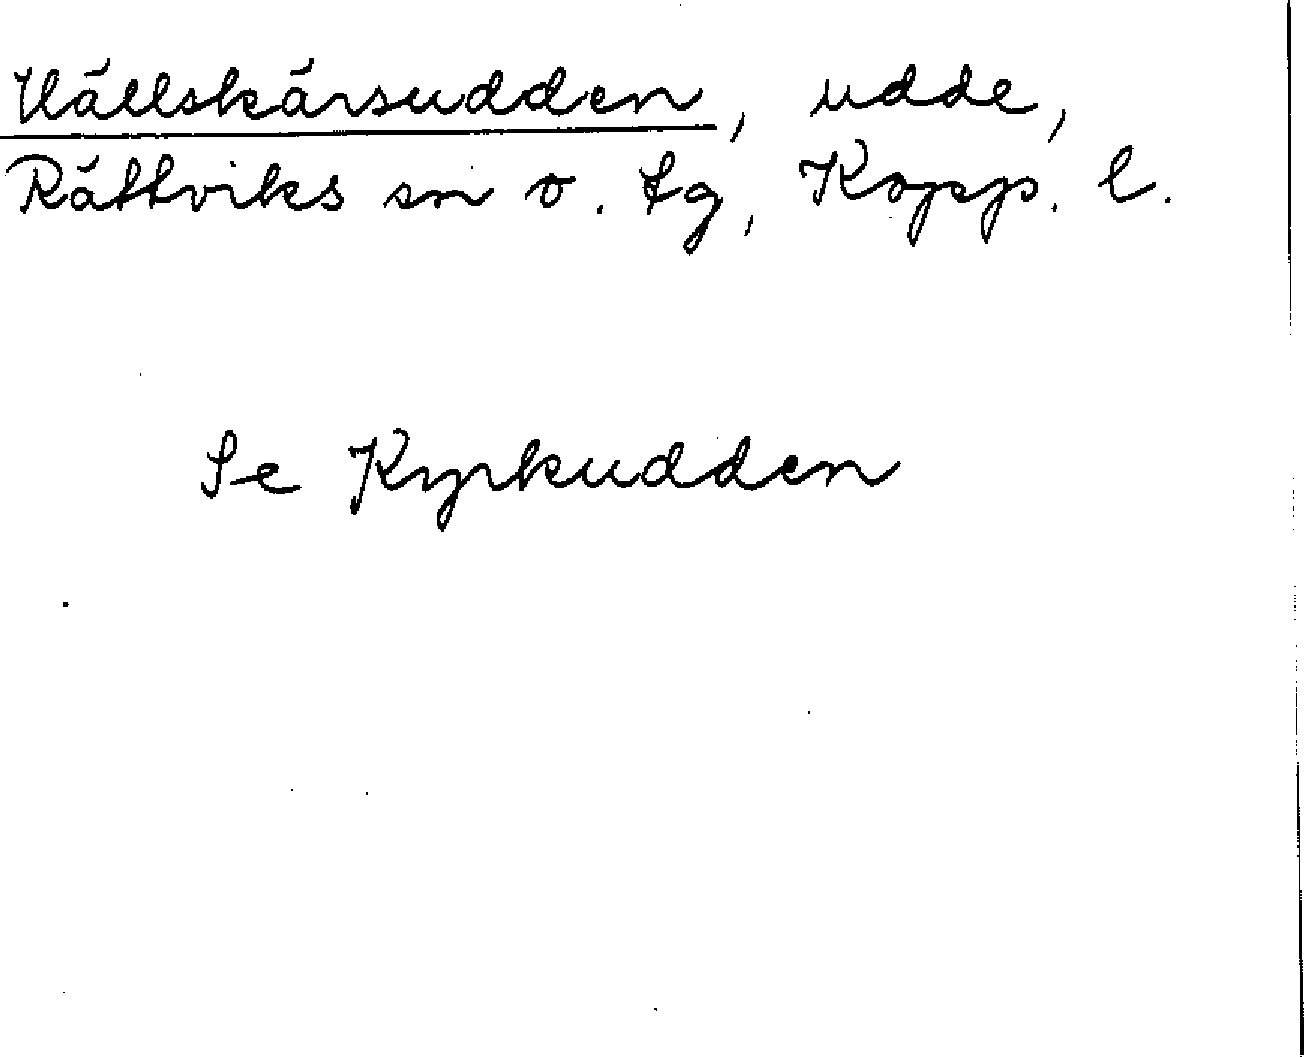 Hällskärsudden, udde,
Rättviks sn o. tg, Kopp. l.
Se Kyrkudden